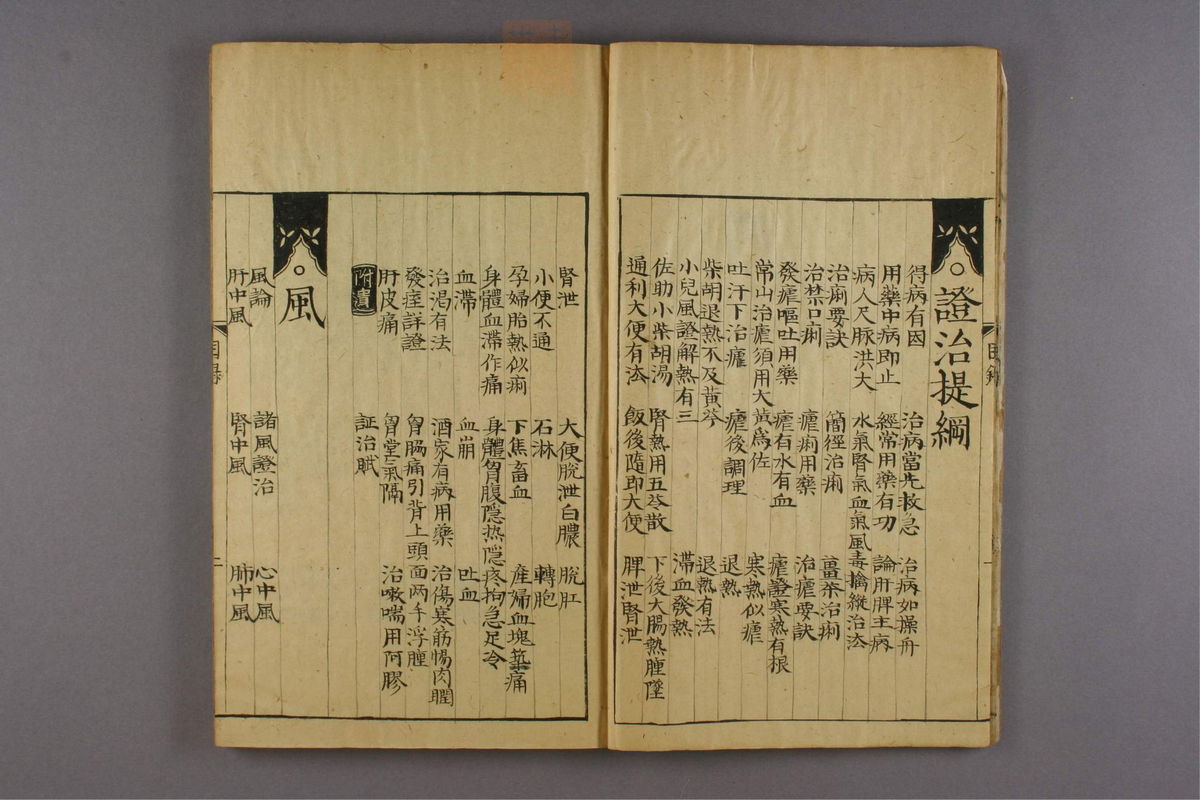 證治提綱
得病有因 治病當先救急 治病如操舟
用藥中病即止 經常用藥有功 論肝脾主病
病人尺脉洪大 水氣腎氣血氣風毒擒縱治法
治痢要訣 簡徑治痢 薑茶治痢
治禁口痢 瘧痢用藥 治瘧要訣
發瘧嘔吐用藥 瘧有水有血 瘧證寒熱有根
常山治瘧須用大黃爲佐 寒熱似瘧
吐汗下治瘧 瘧後調理 退熱
柴胡退熱不及黃芩 退熱有法
小兒風證解熱有三 滯血發熱
佐助小柴胡湯 腎熱用五苓散 下後大腸熱腫墜
通利大便有法 飯後隨即大便 脾泄腎泄
目錄
一
腎泄 大便脫泄白膿 脫肛
小便不通 石淋 轉胞
孕婦胎熱似痢 下焦畜血 產婦血塊築痛
身體血滯作痛 身體胷腹隱热隱疼拘急足冷
血滯 血崩 吐血
治渴有法 酒家有病用藥 治傷寒筋惕肉瞤
發痓詳證 胷膈痛引背上頭面两手浮腫
肝皮痛 胷堂氣隔 治嗽喘用阿膠
附貴 証治賦
風
風論 諸風證治 心中風
肝中風 腎中風 肺中風
目錄
二